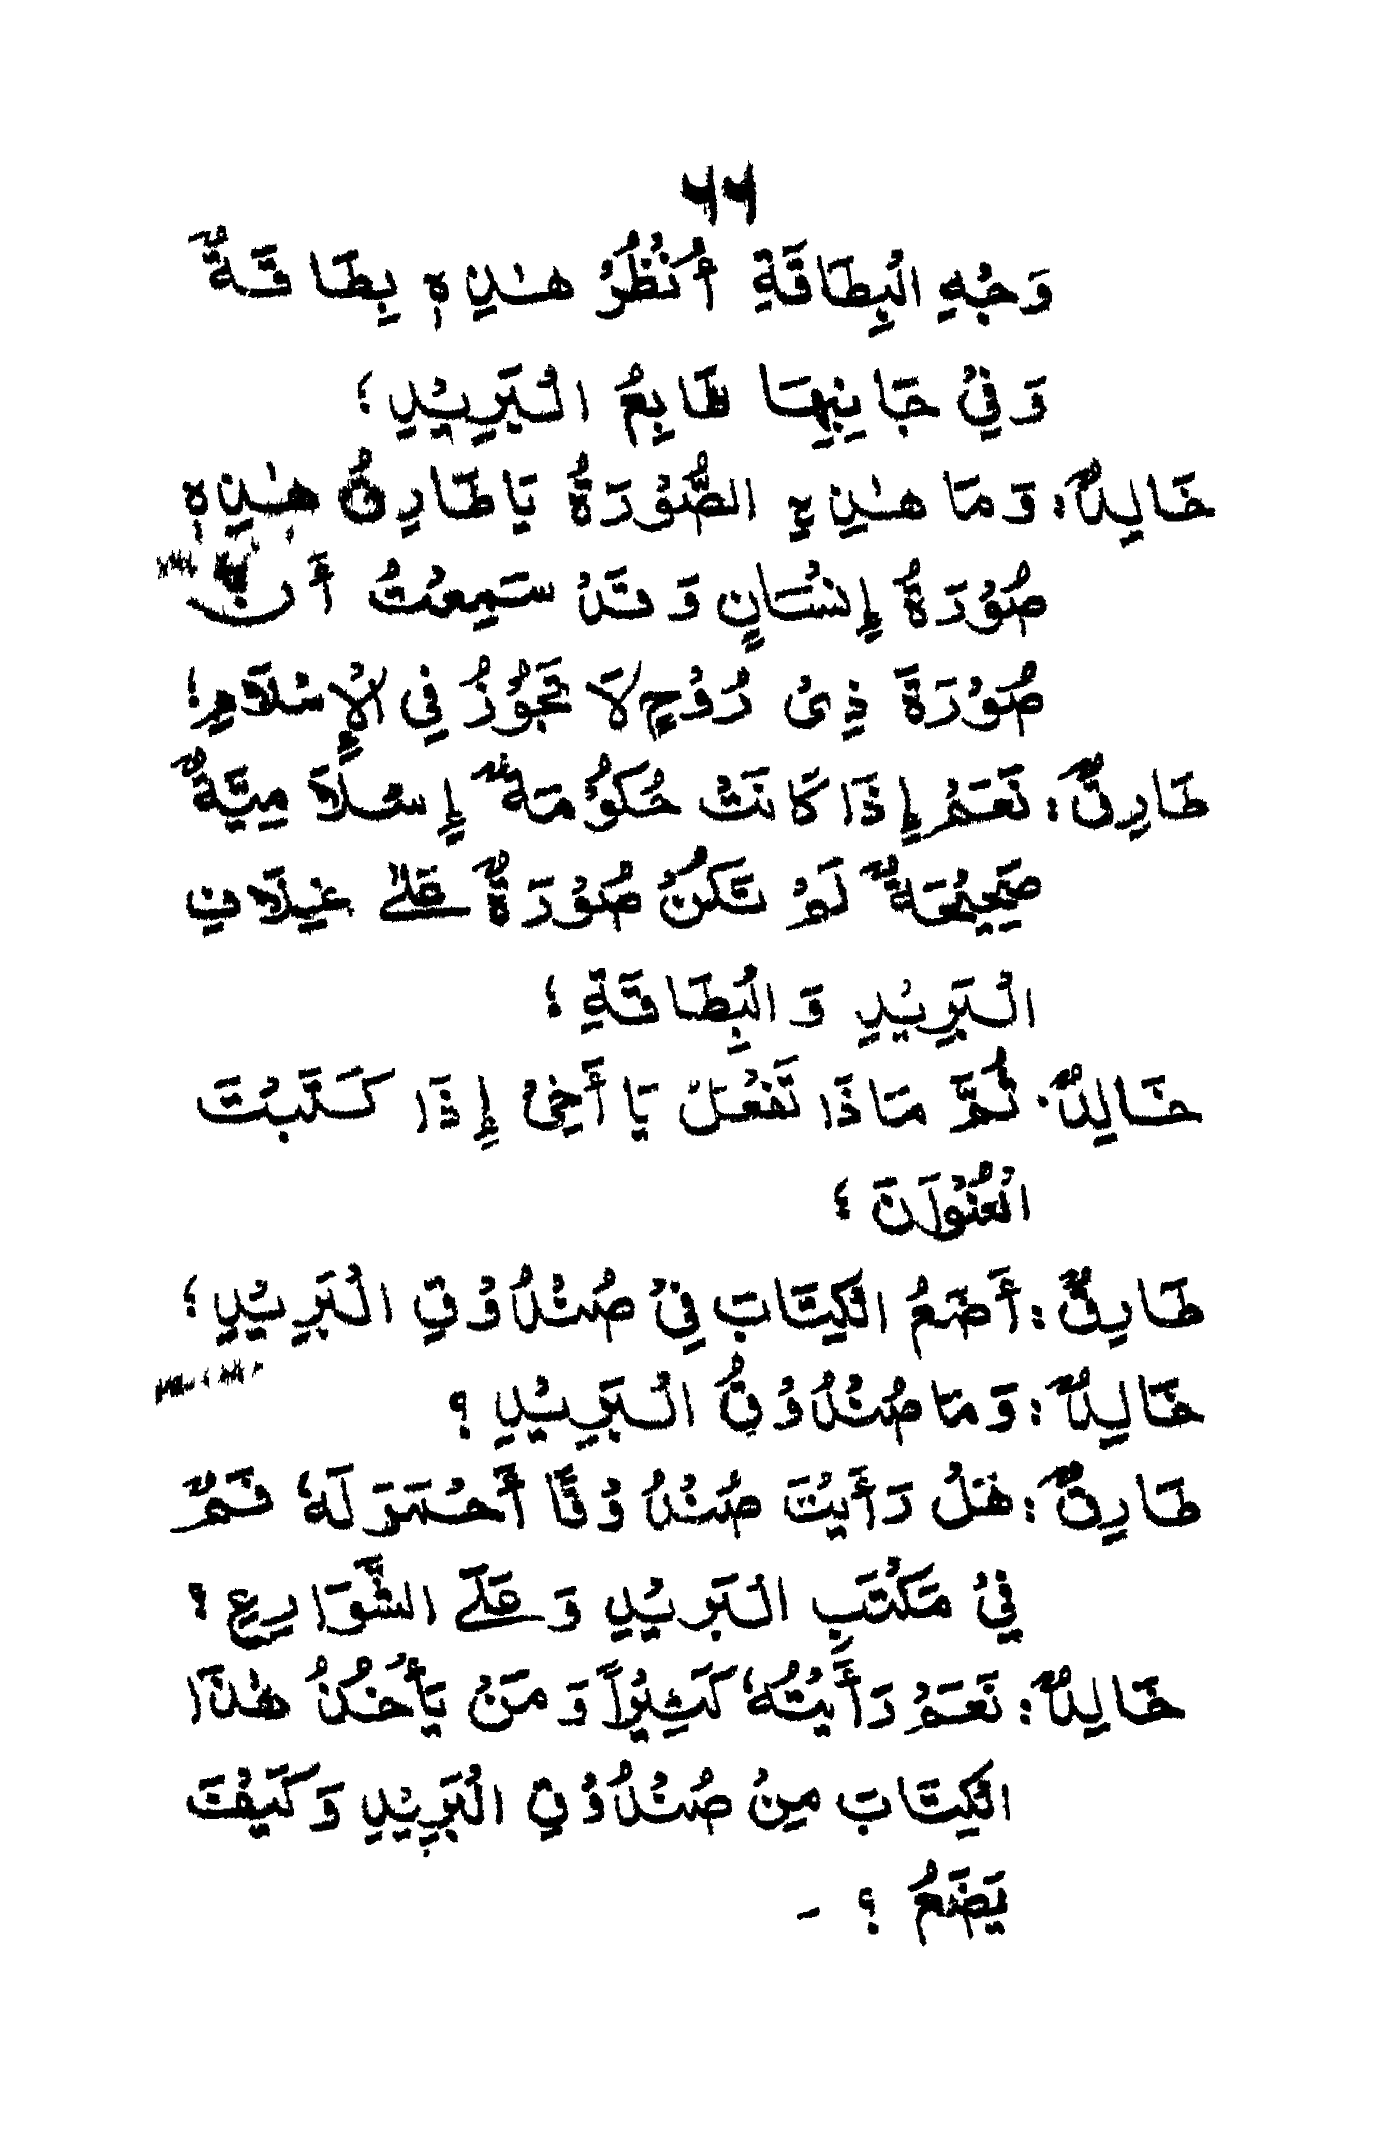 ٦٦
وَجْهِ الْبِطَاقَةِ أُنْظُرْ هٰذِهِ بِطَاقَةٌ
وَفِيْ جَانِبِهَا طَابِعُ الْبَرِيْدِ؛
خَالِدٌ: وَمَا هٰذِهِ الصُّوْرَةُ يَا طَارِقُ هٰذِهِ
صُوْرَةُ إِنْسَانٍ وَقَدْ سَمِعْتُ أَنَّ
صُوْرَةَ ذِىْ رُوْحٍ لَا تَجُوْزُ فِي الْإِسْلَامِ؛
طَارِقٌ: نَعَمْ إِذَا كَانَتْ حُكُوْمَةٌ إِسْلَامِيَّةٌ
صَحِيْحَةٌ لَمْ تَكُنْ صُوْرَةٌ عَلىٰ غِلَافِ
الْبَرِيْدِ وَالْبِطَاقَةِ؛
خَالِدٌ: ثُمَّ مَاذَا تَفْعَلُ يَا أَخِىْ إِذَا كَتَبْتَ
الْعُنْوَانَ؛
طَارِقٌ: أَضَعُ الْكِتَابَ فِيْ صُنْدُوْقِ الْبَرِيْدِ؛
خَالِدٌ: وَمَا صُنْدُوْقُ الْبَرِيْدِ؟
طَارِقٌ: هَلْ رَأَيْتَ صُنْدُوْقًا أَحْمَرَ لَهٗ فَمٌ
فِيْ مَكْتَبِ الْبَرِيْدِ وَعَلَى الشَّوَارِعِ؟
خَالِدٌ: نَعَمْ رَأَيْتُهٗ كَثِيْرًا وَمَنْ يَأْخُذُ هٰذَا
الْكِتَابَ مِنْ صُنْدُوْقِ الْبَرِيْدِ وَكَيْفَ
يَضَعُ؟ -